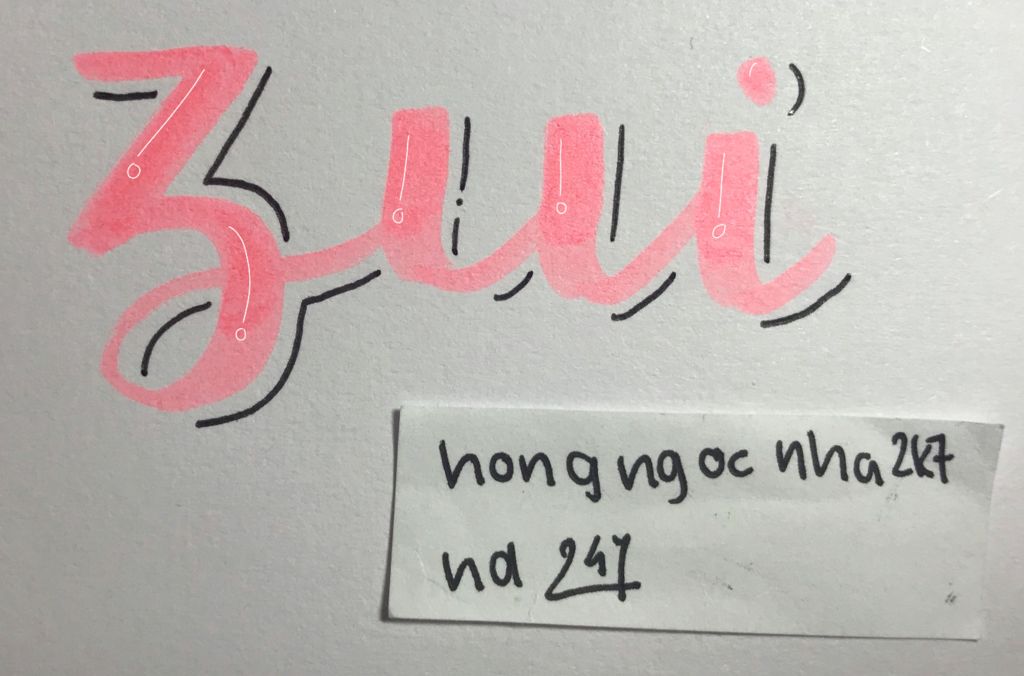 Zui
hongngoc nha2k7
nd 247